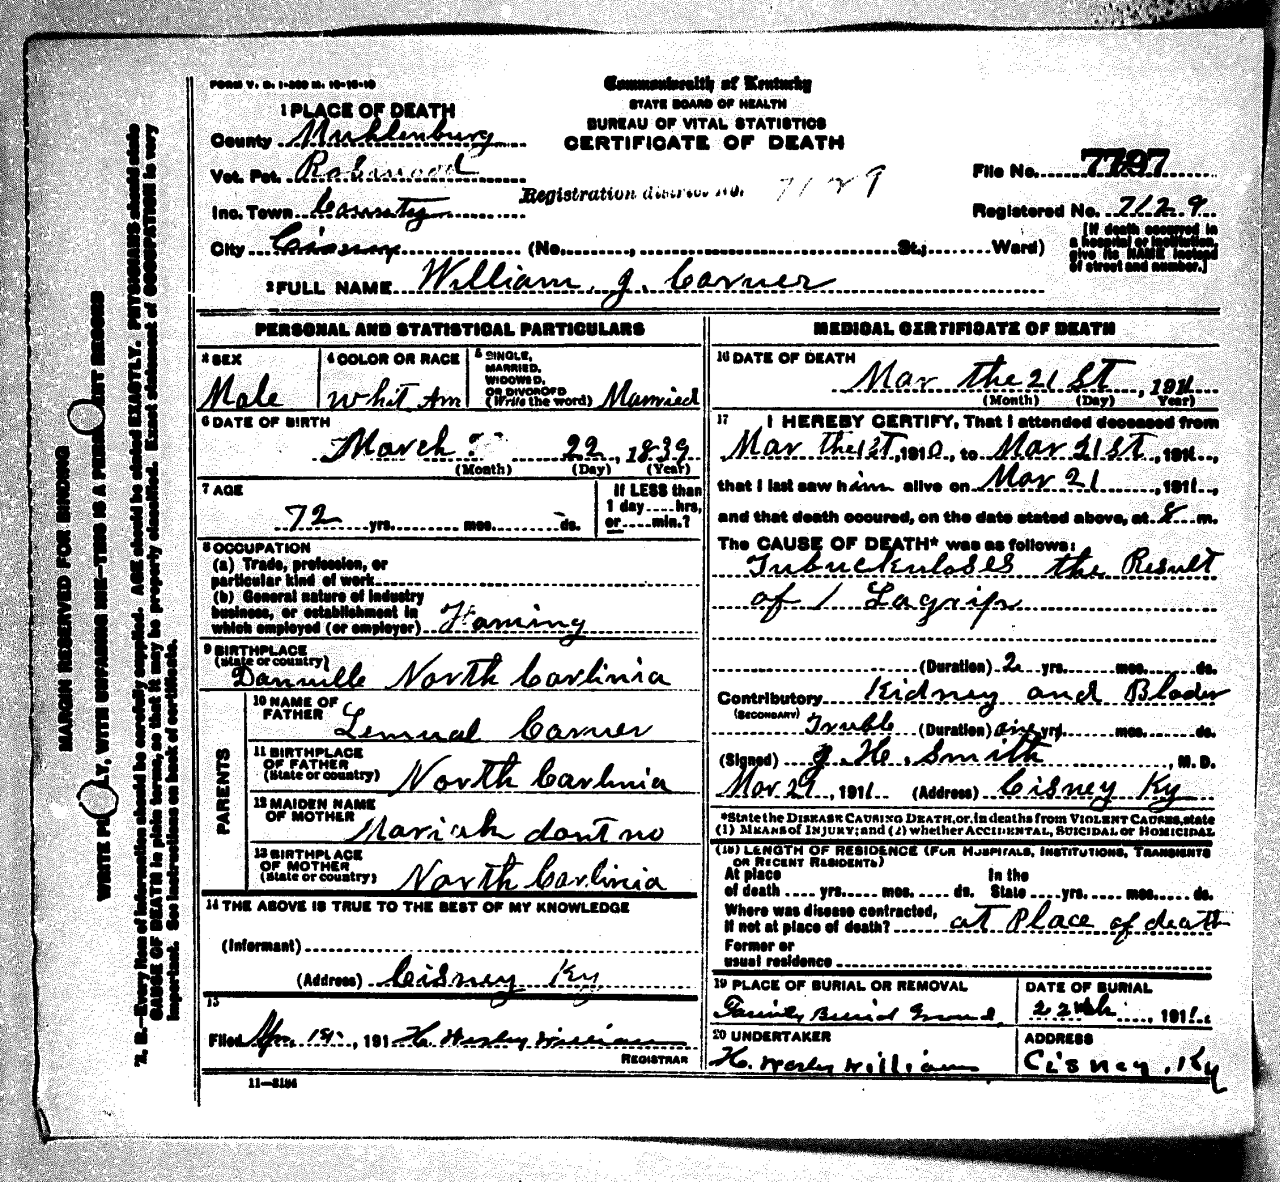 FORM V. S. 1-200 M. 10-18-10
Commonwealth of Kentucky
STATE BOARD OF HEALTH
BUREAU OF VITAL STATISTICS
CERTIFICATE OF DEATH
1 PLACE OF DEATH
County Muhlenburg
Vot. Pct.
Inc. Town County
City Cisney (No. , St.; Ward)
Registration district No. 7129
File No. 7797
Registered No. 7129
[If death occurred in
a hospital or institution,
give its NAME instead
of street and number.]
2 FULL NAME William. J. Carner
PERSONAL AND STATISTICAL PARTICULARS
3 SEX
Male
4 COLOR OR RACE
Whit Am
5 SINGLE,
MARRIED,
WIDOWED,
OR DIVORCED
(Write the word) Married
6 DATE OF BIRTH
March 22, 1839
(Month) (Day) (Year)
7 AGE
72 yrs. mos. ds.
If LESS than
1 day hrs.
or min.?
8 OCCUPATION
(a) Trade, profession, or
particular kind of work
(b) General nature of industry
business, or establishment in
which employed (or employer) Faming
9 BIRTHPLACE
(State or country)
Danville North Carlinia
PARENTS
10 NAME OF
FATHER Lemual Carner
11 BIRTHPLACE
OF FATHER
(State or country) North Carlinia
12 MAIDEN NAME
OF MOTHER Mariah dont no
13 BIRTHPLACE
OF MOTHER
(State or country) North Carlinia
14 THE ABOVE IS TRUE TO THE BEST OF MY KNOWLEDGE
(Informant)
(Address) Cisney Ky
15
Filed 191 H. Wesley Williams
REGISTRAR
11-3184
MEDICAL CERTIFICATE OF DEATH
16 DATE OF DEATH
Mar the 21 st, 1911
(Month) (Day) (Year)
17 I HEREBY CERTIFY, That I attended deceased from
Mar the 1st, 1910, to Mar 21 st, 1911,
that I last saw him alive on Mar 21, 1911,
and that death occured, on the date stated above, at 8 m.
The CAUSE OF DEATH* was as follows:
Tubuckuloses the Result
of Lagripp
(Duration) 2 yrs. mos. ds.
Contributory Kidney and Blader
(SECONDARY) Truble (Duration) yrs. mos. ds.
(Signed) J. H. Smith, M. D.
Mar 29, 1911 (Address) Cisney Ky
*State the DISEASE CAUSING DEATH, or, in deaths from VIOLENT CAUSES, state
(1) MEANS of INJURY; and (2) whether ACCIDENTAL, SUICIDAL or HOMICIDAL
(18) LENGTH OF RESIDENCE (FOR HOSPITALS, INSTITUTIONS, TRANSIENTS
OR RECENT RESIDENTS)
At place In the
of death yrs. mos. ds. State yrs. mos. ds.
Where was disease contracted,
if not at place of death? at Place of death
Former or
usual residence
19 PLACE OF BURIAL OR REMOVAL
Family Buriel Ground
DATE OF BURIAL
22, 1911
20 UNDERTAKER
H. Wesley Williams
ADDRESS
Cisney, Ky
MARGIN RESERVED FOR BINDING
WRITE PLAINLY, WITH UNFADING INK—THIS IS A PERMANENT RECORD
N. B.—Every item of information should be carefully supplied. AGE should be stated EXACTLY. PHYSICIANS should state
CAUSE OF DEATH in plain terms, so that it may be properly classified. Exact statement of OCCUPATION is very
important. See instructions on back of certificate.